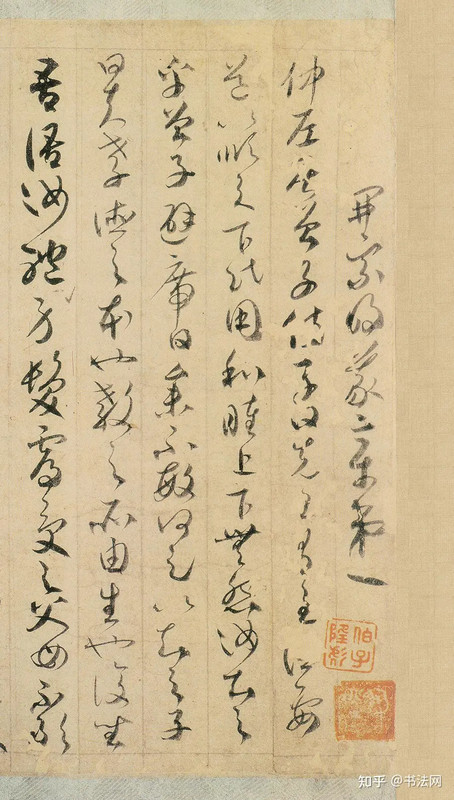 開宗明義章第一
仲尼居曾子侍子曰先王有至德要
道以順天下民用和睦上下無怨汝知之
乎曾子避席曰參不敏何足以知之子
曰夫孝德之本也教之所由生也復坐
吾語汝身體髮膚受之父母不敢
知乎 @书法网